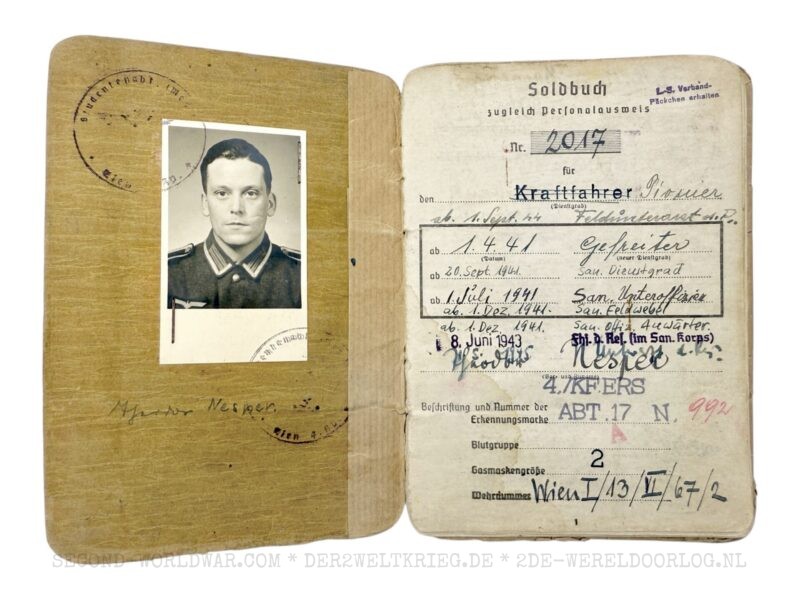 Studentenabt.
Wien
Theodor Nesper.
Wien
Soldbuch
zugleich Personalausweis
L-S. Verband-
Päckchen erhalten
Nr. 2017
für
den Kraftfahrer Pionier
(Dienstgrad)
ab 1. Sept. 44 Feldunterarzt d.R.
ab 1.4.41 Gefreiter
(Datum) (neuer Dienstgrad)
ab 20. Sept. 1941. San. Dienstgrad
ab 1. Juli 1941 San. Unteroffizier
ab 1. Dez. 1941. San. Feldwebel
ab 1. Dez. 1941. San. Offz. Anwärter.
8. Juni 1943 (im San. Korps)
Theodor Nesper
4./KF.ERS
Beschriftung und Nummer der
Erkennungsmarke ABT. 17 N. 992
A
Blutgruppe
Gasmaskengröße 2
Wehrnummer Wien I/13/VI/67/2
1
SECOND-WORLDWAR.COM * DER2WELTKRIEG.DE * 2DE-WERELDOORLOG.NL